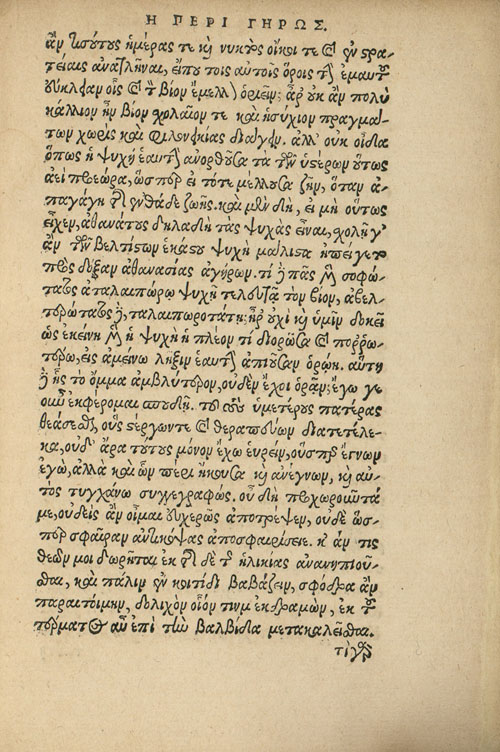 Η ΠΕΡΙ ΓΗΡΩΣ.
ἂν τοσούτους ἡμέρας τε καὶ νυκτὸς οἴκοι τε καὶ ἐν στρα-
τείαις ἀνατλῆναι, εἴπερ τοῖς αὐτοῖς ὅροις τὴν ἐμαυτοῦ
εὔκλειαν οἷς καὶ τὸν βίον ἔμελλον ὁριεῖν; ἆρ' οὐκ ἂν πολὺ
κάλλιον ἦν βίον σχολαῖόν τε καὶ ἡσύχιον πραγμά-
των χωρὶς καὶ φιλονεικίας διάγειν. ἀλλ' οὐκ οἶδα
ὅπως ἡ ψυχὴ ἑαυτὴν ἀνορθοῦσα τὰ τῶν ὑστέρων οὕτως
ἀεὶ προεώρα, ὥσπερ εἰ τότε μέλλουσα ζῆν, ὅταν ἀ-
παγάγῃ τῆς ἐνθάδε ζωῆς. καὶ μὲν δὴ, εἰ μὴ οὕτως
εἶχεν, ἀθανάτους δηλαδὴ τὰς ψυχὰς εἶναι, σχολῇ γ'
ἂν τῶν βελτίστων ἑκάστου ψυχὴ μάλιστα ἠπείγετο
πρὸς δόξαν ἀθανασίας ἀγήρων. τί ἡ πᾶς μὲν σοφώ-
τατος ἀταλαιπώρῳ ψυχῇ τελευτᾷ τὸν βίον, ἀβελ-
τερώτατος δὲ, ταλαιπωροτάτῃ; ἦρ' οὐχὶ καὶ ὑμῖν δοκεῖ
ὡς ἐκείνη μὲν ἡ ψυχὴ ἡ πλέον τι διορῶσα καὶ πορρω-
τέρω, εἰς ἀμείνω λῆξιν ἑαυτὴν ἀπιοῦσαν ὁρῴη. αὕτη
δὲ ἧς τὸ ὄμμα ἀμβλύτερον, οὐδὲν ἔχοι ὁρᾶν; ἔγωγε
οὖν ἐκφέρομαι σπουδῇ. τοῦ τοὺς ὑμετέρους πατέρας
θεάσεσθαι, οὓς στέργων τε καὶ θεραπεύων διατετέλε-
κα, οὐδ' ἄρα τούτους μόνον ἔχω εὑρεῖν, οὕσπερ ἔγνων
ἐγὼ, ἀλλὰ καὶ ὧν πέρι ἤκουσα καὶ ἀνέγνων, καὶ αὐ-
τὸς τυγχάνω συγγεγραφώς. οὗ δὴ προχωροῦντά
με, οὐδεὶς ἂν οἶμαι εὐχερῶς ἀποτρέψειεν, οὐδὲ ὥσ-
περ σφαῖραν ἀνακόψας ἀποσφαιρίσειε. κἄν τις
θεῶν μοι δωρῆται ἐκ τῆσδε τῆς ἡλικίας ἀνανηπιοῦ-
σθαι, καὶ πάλιν ἐν κοιτίδι βαβάζειν, σφόδρα ἂν
παραιτοίμην, δολιχὸν οἷόν τινα ἐκδραμὼν, ἐκ τοῦ
τέρματος αὖ ἐπὶ τὴν βαλβῖδα μετακαλεῖσθαι.
τί γὰρ